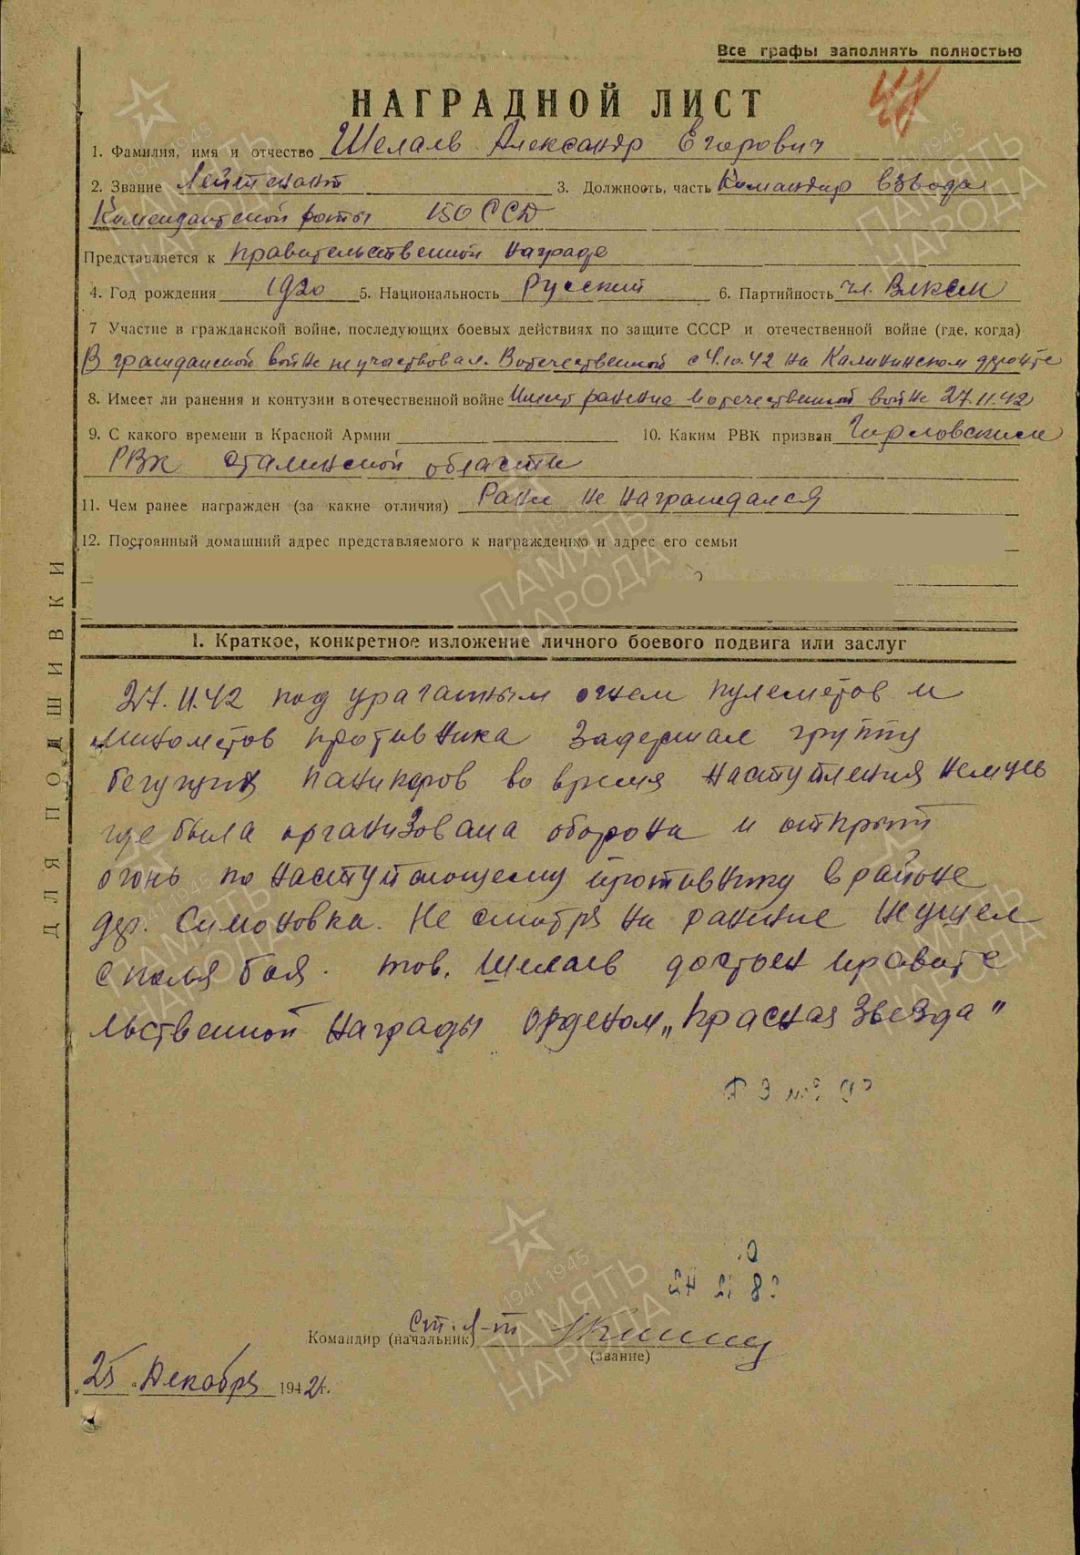 Все графы заполнять полностью
НАГРАДНОЙ ЛИСТ
48
1. Фамилия, имя и отчество Шелаев Александр Егорович
2. Звание Лейтенант 3. Должность, часть Командир взвода
Комендантской роты 150 ССД
Представляется к правительственной награде
4. Год рождения 1920 5. Национальность Русский 6. Партийность чл. Влксм
7 Участие в гражданской войне, последующих боевых действиях по защите СССР и отечественной войне (где, когда)
В гражданской войне не участвовал. В отечественной с 4.10.42 на Калининском фронте
8. Имеет ли ранения и контузии в отечественной войне Имеет ранение в отечественной войне 27.11.42
9. С какого времени в Красной Армии 10. Каким РВК призван Горловским
РВК Сталинской области
11. Чем ранее награжден (за какие отличия) Ранее не награждался
12. Постоянный домашний адрес представляемого к награждению и адрес его семьи
I. Краткое, конкретное изложение личного боевого подвига или заслуг
27.11.42 под ураганным огнем пулеметов и
минометов противника задержал группу
бегущих паникеров во время наступления немцев
где была организована оборона и открыт
огонь по наступающему противнику в районе
дер. Симоновка. Не смотря на ранение не ушел
с поля боя. тов. Шелаев достоин правите
льственной награды орденом „Красная Звезда"
Ст. л-т
Командир (начальник)
(звание)
25 Декабря 1942г.
ДЛЯ ПОДШИВКИ
1941 1945
ПАМЯТЬ
НАРОДА